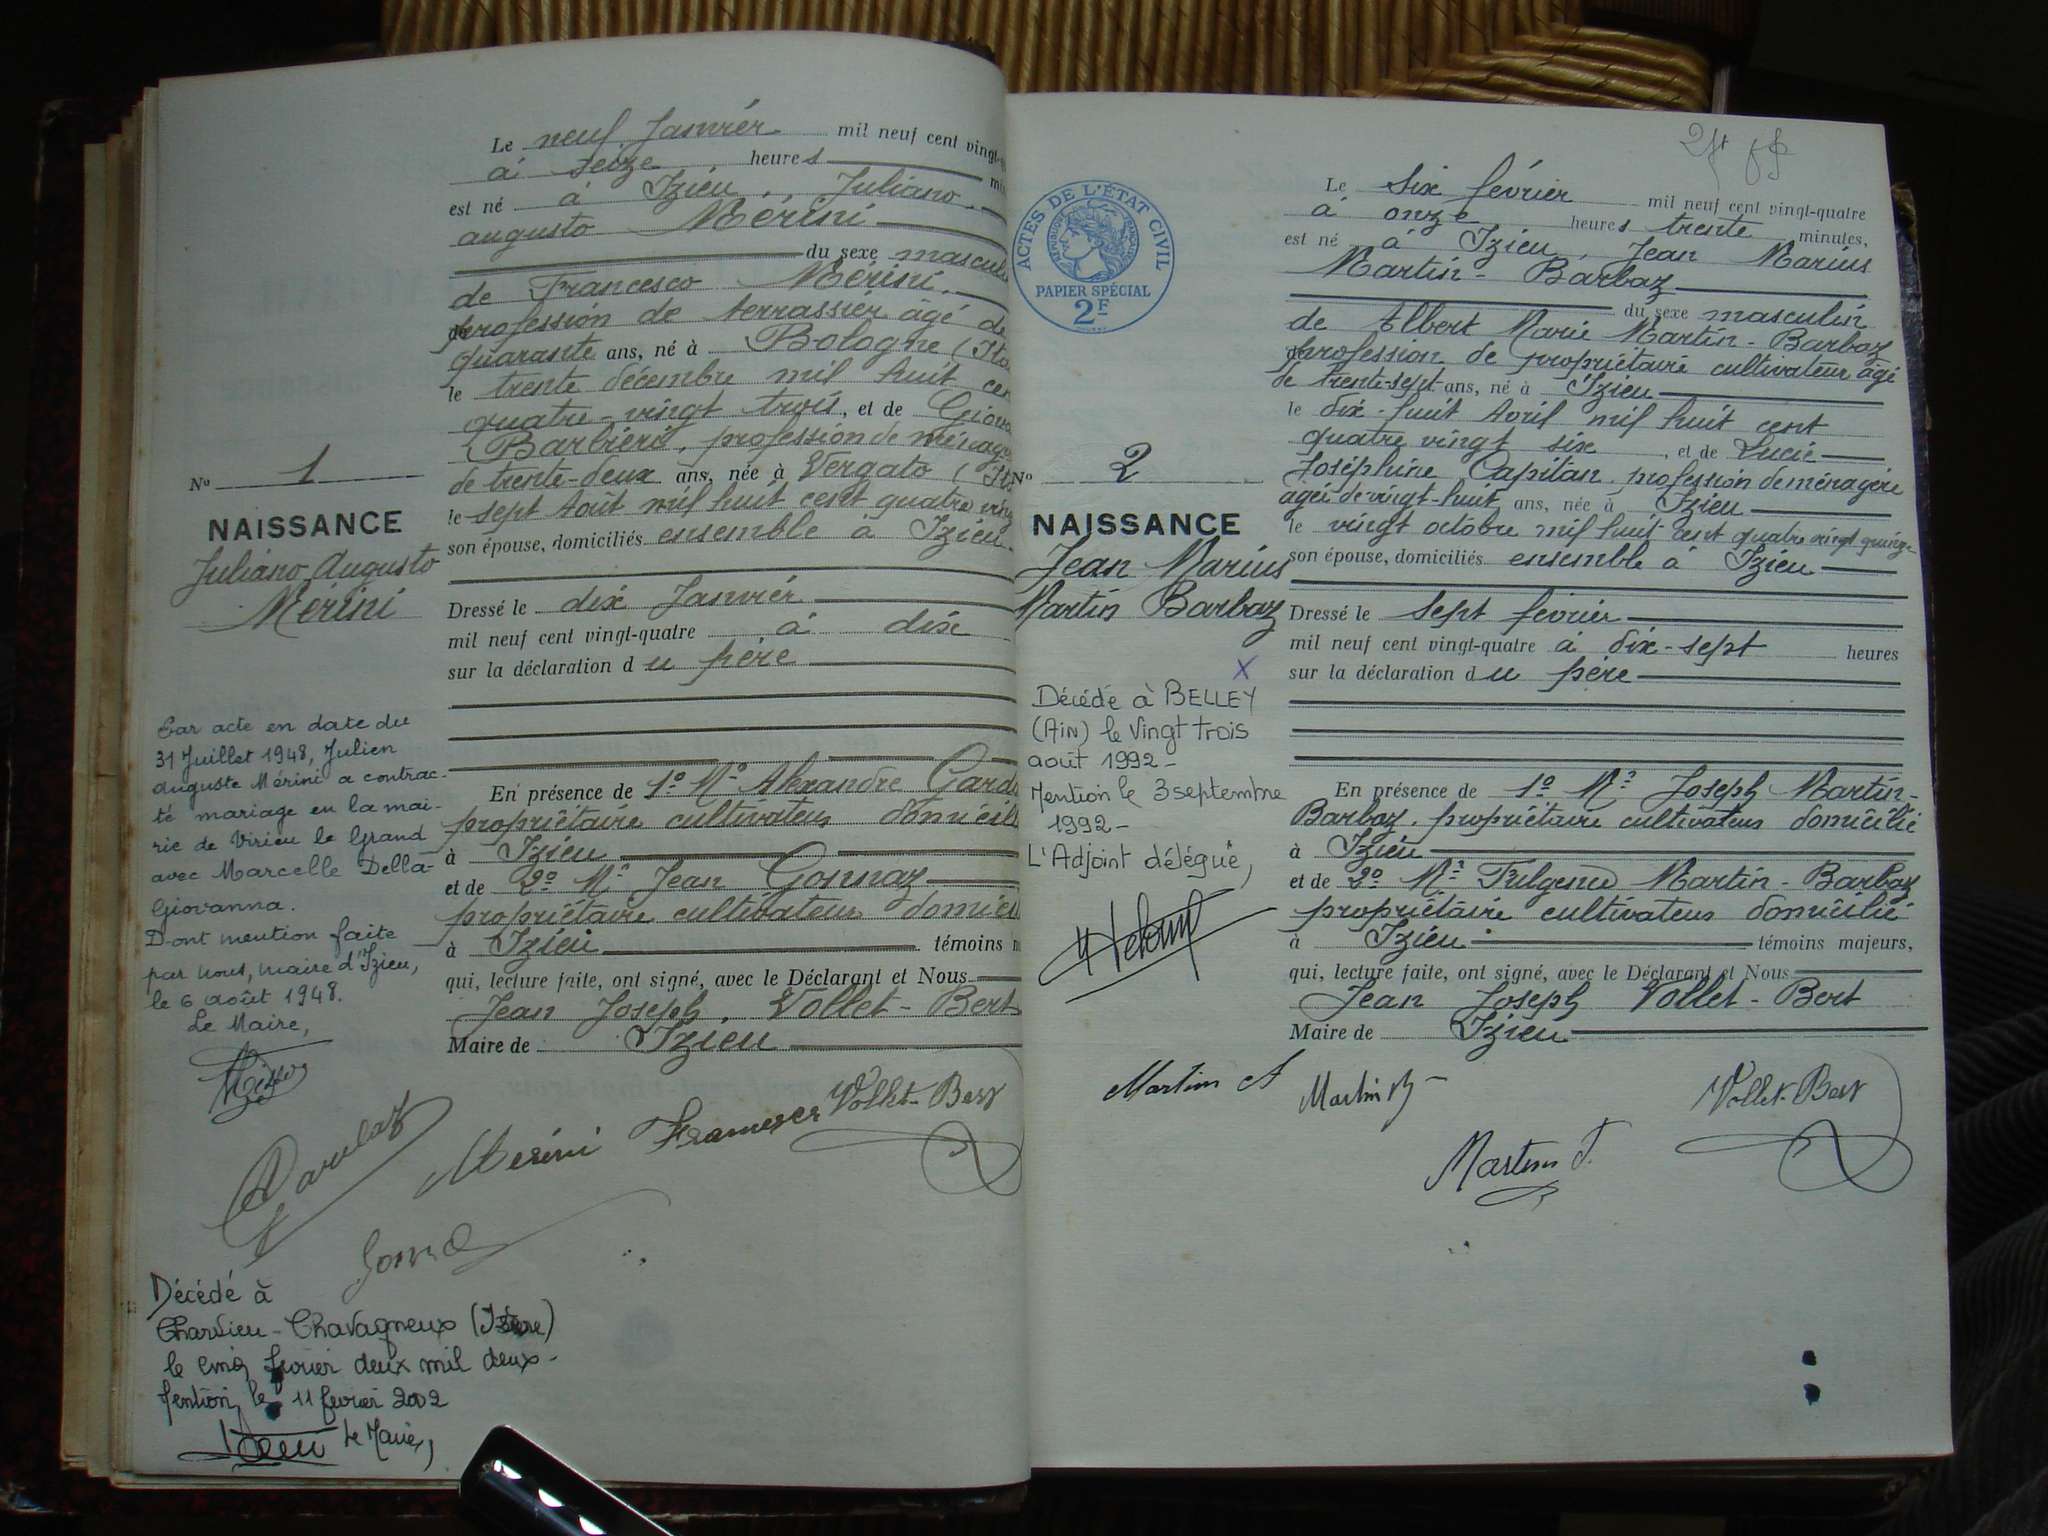 Le neuf Janvier mil neuf cent vingt-
à seize heures
est né à Izieu, Juliano
augusto Mérini
du sexe mascul
de Francesco Mérini,
profession de terrassier âgé de
quarante ans, né à Bologne (Ita
le trente décembre mil huit cen
quatre-vingt trois, et de Giova
Barbieri, profession de ménag
de trente-deux ans, née à Vergato (Ita
le sept Août mil huit cent quatre ving
son épouse, domiciliés ensemble à Izieu.
No 1
NAISSANCE
Juliano Augusto
Mérini
Dressé le dix Janvier
mil neuf cent vingt-quatre à dix
sur la déclaration du père
En présence de 1º Mr Alexandre Gard
propriétaire cultivateur domicil
à Izieu
et de 2º Mr Jean Gonnaz
propriétaire cultivateur domici
à Izieu témoins m
qui, lecture faite, ont signé, avec le Déclarant et Nous
Jean Joseph, Vollet-Bert
Maire de Izieu
Par acte en date du
31 Juillet 1948, Julien
auguste Mérini a contrac-
té mariage en la mai-
rie de Virieu le Grand
avec Marcelle Della-
Giovanna.
Dont mention faite
par nous, maire d'Izieu,
le 6 août 1948.
Le Maire,
Mérini Francesco Vollet-Bert
Décédé à
Charvieu-Chavagneux (Isère)
le cinq février deux mil deux-
Mention le 11 février 2002
Le Maire,
2
ACTES DE L'ÉTAT CIVIL
RÉPUBLIQUE FRANÇAISE
PAPIER SPÉCIAL
2F
Le six février mil neuf cent vingt-quatre
à onze heures trente minutes,
est né à Izieu, Jean Marius
Martin-Barbaz
du sexe masculin
de Albert Marie Martin-Barbaz
profession de propriétaire cultivateur âgé
de trente-sept ans, né à Izieu
le dix-huit Avril mil huit cent
quatre vingt six, et de Lucie
Joséphine Capitan, profession de ménagère
âgée de vingt-huit ans, née à Izieu
le vingt octobre mil huit cent quatre vingt quinze
son épouse, domiciliés ensemble à Izieu
No 2
NAISSANCE
Jean Marius
Martin Barbaz
Dressé le sept février
mil neuf cent vingt-quatre à dix-sept heures
sur la déclaration du père
X
Décédé à BELLEY
(Ain) le vingt trois
août 1992-
Mention le 3 septembre
1992-
L'Adjoint délégué,
En présence de 1º Mr Joseph Martin-
Barbaz, propriétaire cultivateur domicilié
à Izieu
et de 2º Mr Fulgence Martin-Barbaz
propriétaire cultivateur domicilié
à Izieu témoins majeurs,
qui, lecture faite, ont signé, avec le Déclarant et Nous
Jean Joseph Vollet-Bert
Maire de Izieu
Martin A Martin Vollet-Bert
Martin J.